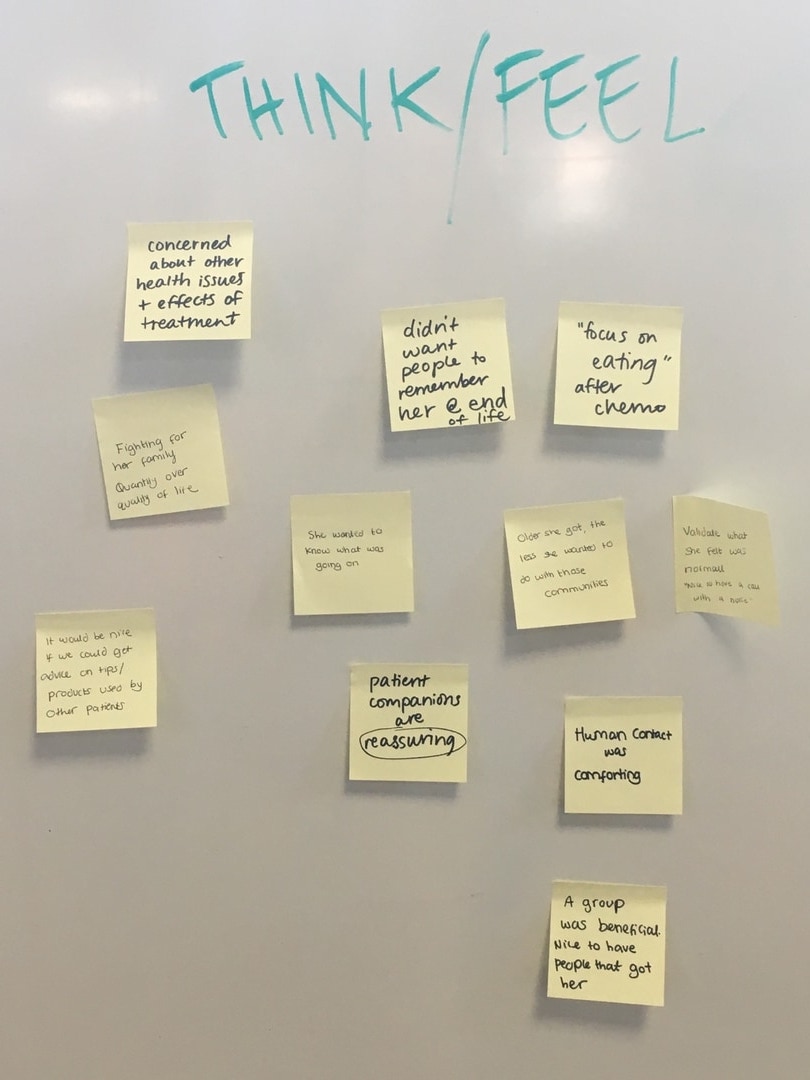 THINK/FEEL
concerned
about other
health issues
+ effects of
treatment
didn't
want
people to
remember
her @ end
of life
"focus on
eating"
after
chemo
Fighting for
her family
Quantity over
quality of life
She wanted to
know what was
going on
Older she got, the
less she wanted to
do with those
communities
Validate what
she felt was
normal
to have a
with a
It would be nice
if we could get
advice on tips/
products used by
other patients
patient
companions
are
reassuring
Human Contact
was
comforting
A group
was beneficial.
Nice to have
people that got
her